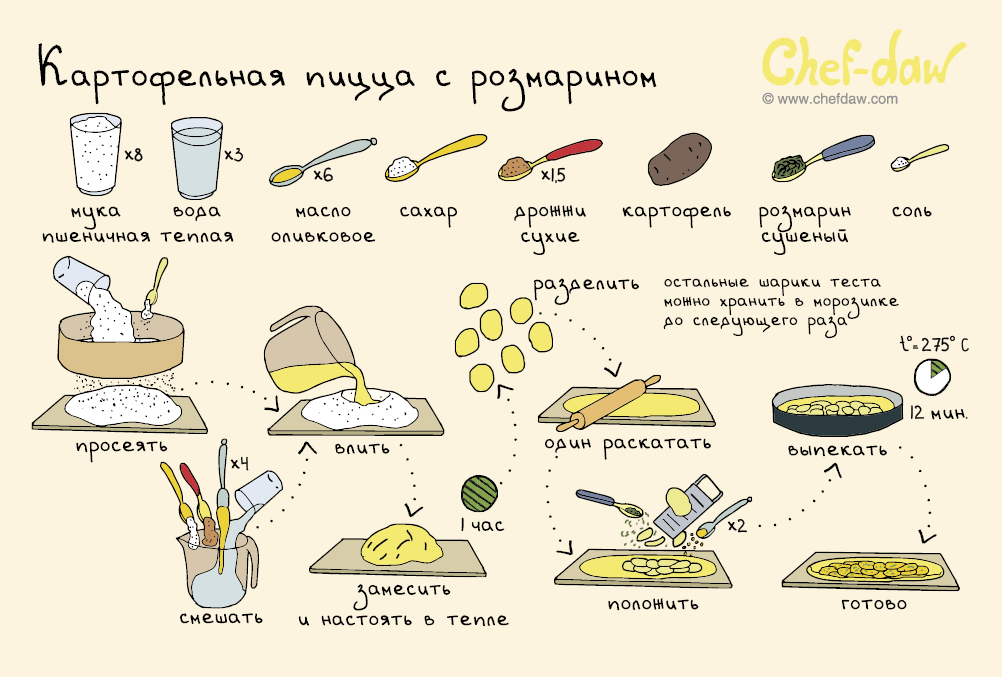 Картофельная пицца с розмарином
Chef-daw
© www.chefdaw.com
x8
x3
x6
x1,5
мука
пшеничная
вода
теплая
масло
оливковое
сахар
дрожжи
сухие
картофель
розмарин
сушеный
соль
просеять
влить
x4
смешать
1 час
замесить
и настоять в тепле
разделить
остальные шарики теста
можно хранить в морозилке
до следующего раза
один раскатать
x2
положить
t°=275° C
12 мин.
выпекать
готово